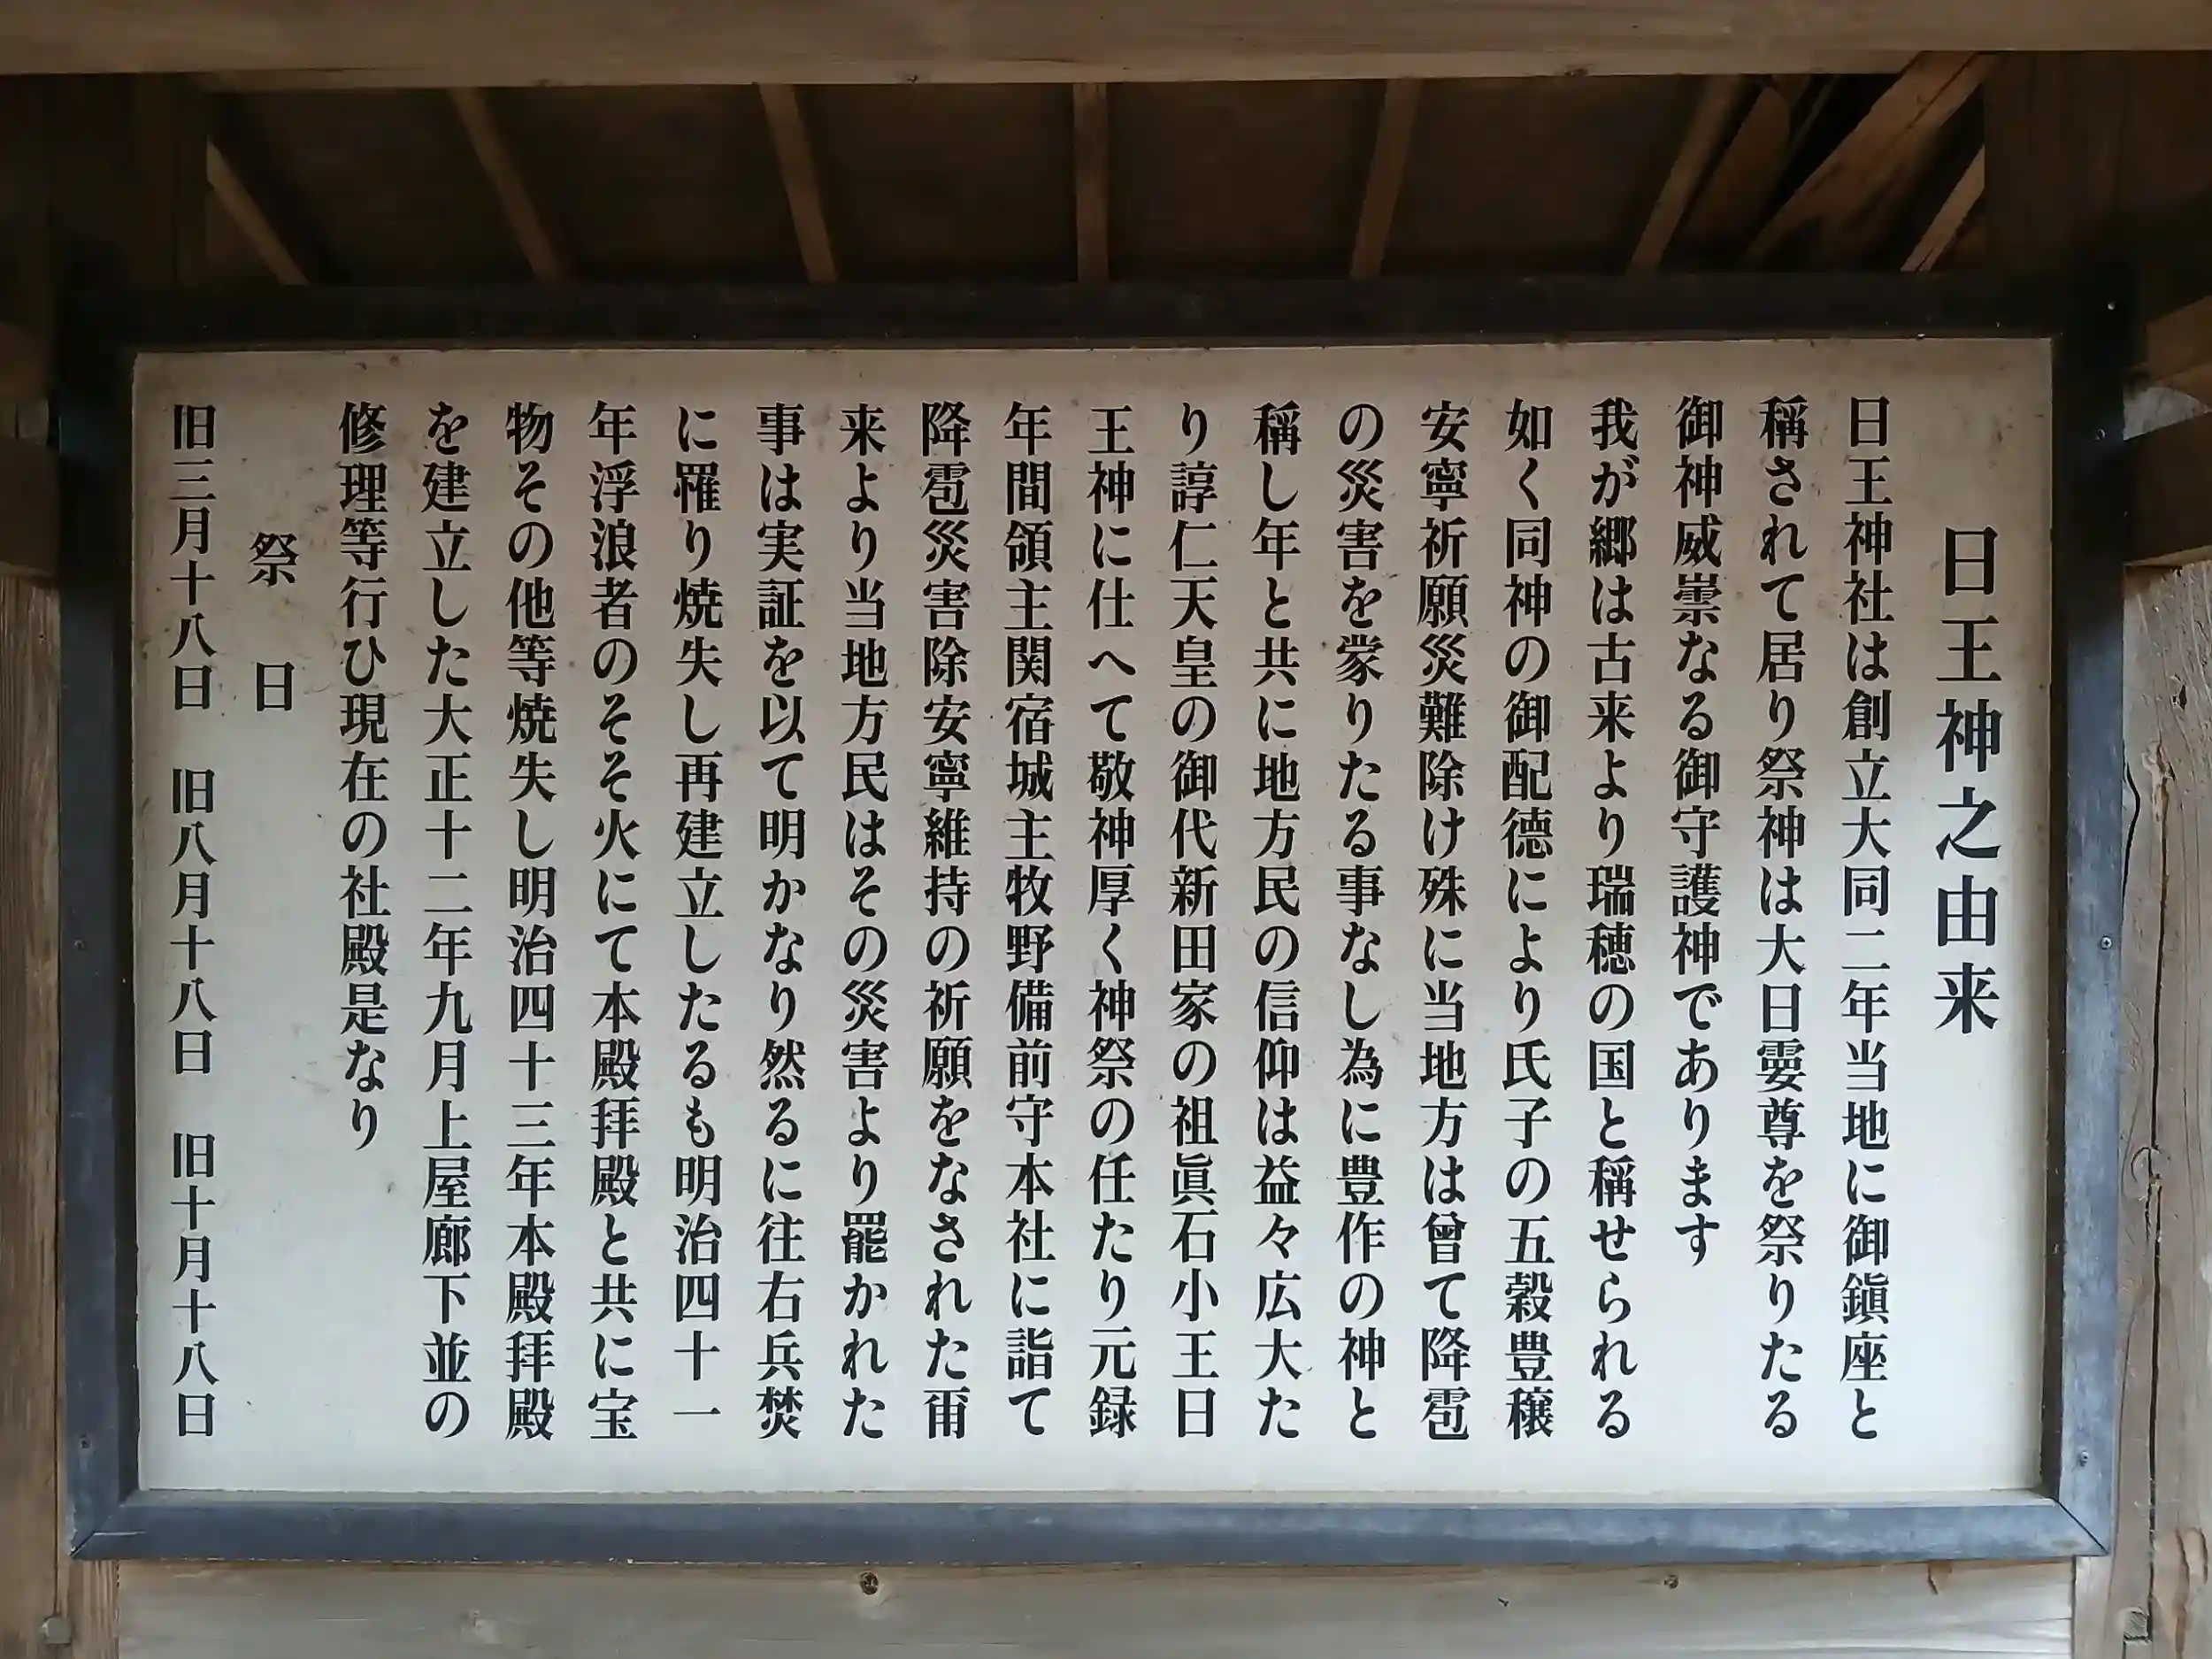 日王神之由来
日王神社は創立大同二年当地に御鎭座と
稱されて居り祭神は大日孁尊を祭りたる
御神威崇なる御守護神であります
我が郷は古来より瑞穂の国と稱せられる
如く同神の御配德により氏子の五穀豊穣
安寧祈願災難除け殊に当地方は曾て降雹
の災害を蒙りたる事なし為に豊作の神と
稱し年と共に地方民の信仰は益々広大た
り諄仁天皇の御代新田家の祖眞石小王日
王神に仕へて敬神厚く神祭の任たり元録
年間領主関宿城主牧野備前守本社に詣て
降雹災害除安寧維持の祈願をなされた爾
来より当地方民はその災害より罷かれた
事は実証を以て明かなり然るに往右兵焚
に罹り焼失し再建立したるも明治四十一
年浮浪者のそそ火にて本殿拝殿と共に宝
物その他等焼失し明治四十三年本殿拝殿
を建立した大正十二年九月上屋廊下並の
修理等行ひ現在の社殿是なり
祭日
旧三月十八日　旧八月十八日　旧十月十八日